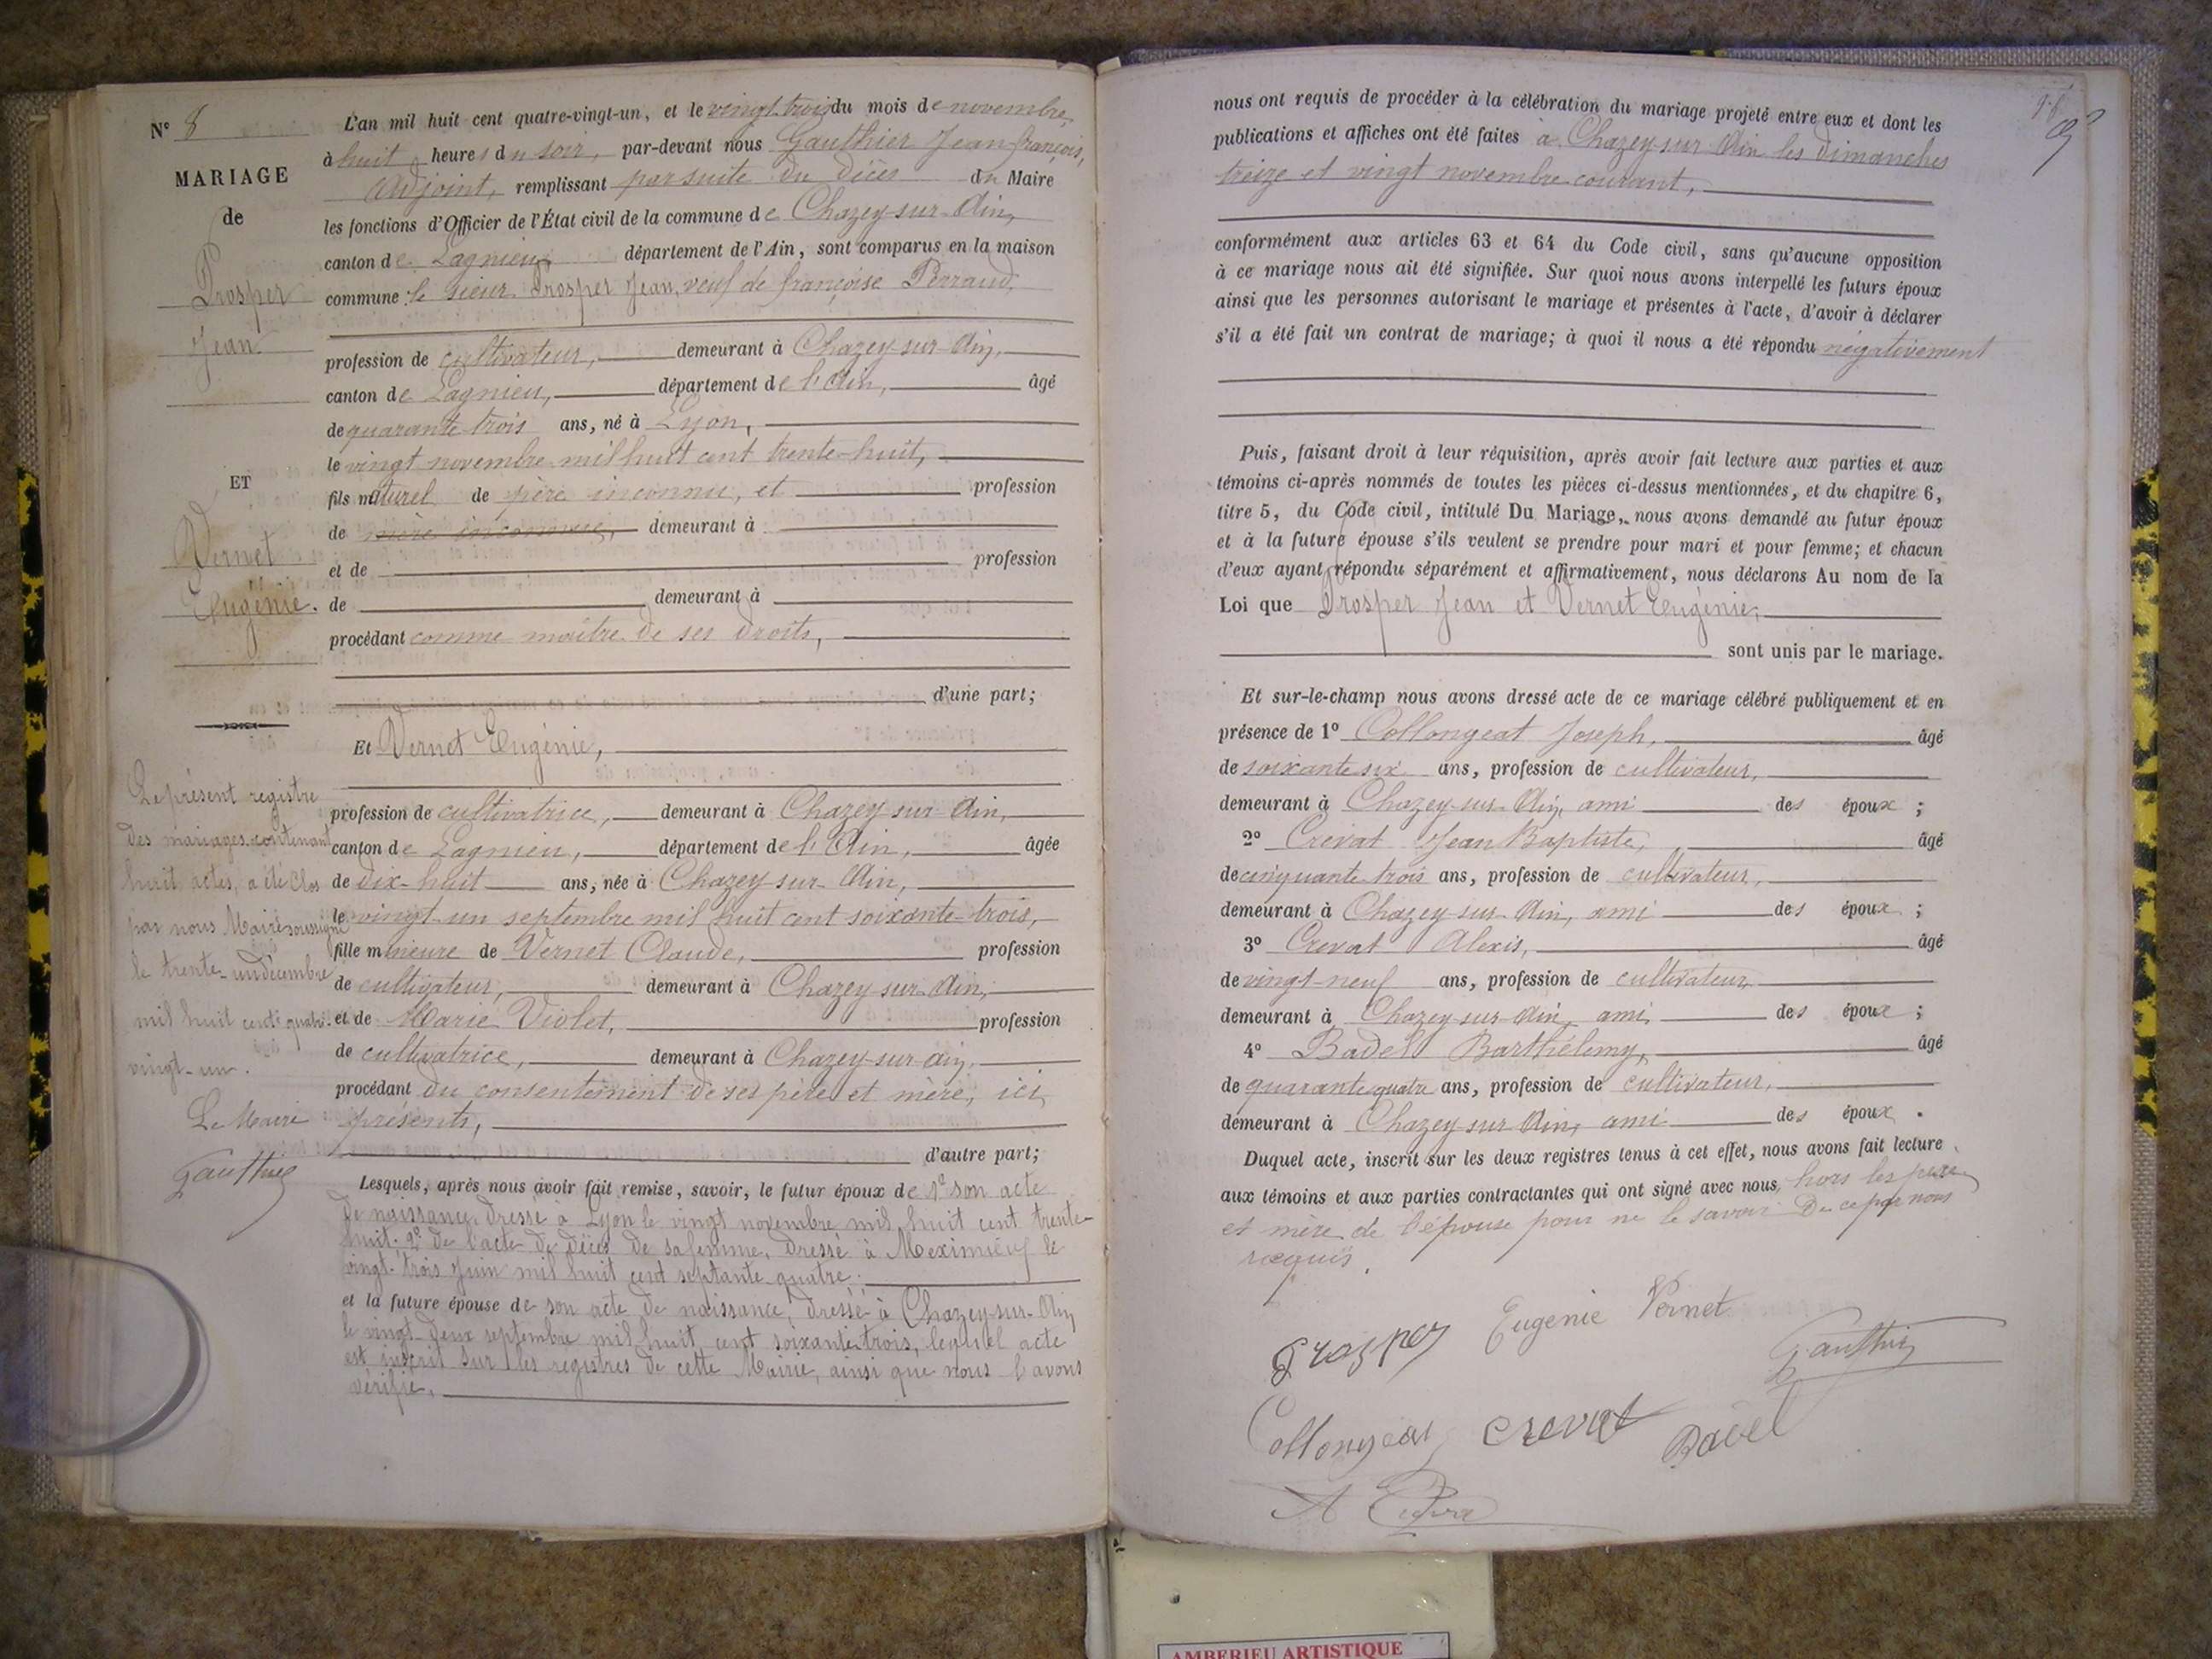 N° 8
MARIAGE
de
Prosper
Jean
ET
Vernet
Eugénie.
Le présent registre
des mariages contenant
huit actes, a été Clos
par nous Maire soussigné
le trente-un décembre
mil huit cent quatre-
vingt-un.
Le Maire
Gauthier
L'an mil huit cent quatre-vingt-un, et le vingt trois du mois de novembre,
à huit heures du soir, par-devant nous Gauthier Jean françois,
Adjoint, remplissant par suite du décès du Maire
les fonctions d'Officier de l'État civil de la commune de Chazey-sur-Ain,
canton de Lagnieu département de l'Ain, sont comparus en la maison
commune : le sieur Prosper Jean, veuf de françoise Perraud,
profession de cultivateur, demeurant à Chazey-sur-Ain,
canton de Lagnieu, département de l'Ain, âgé
de quarante trois ans, né à Lyon,
le vingt novembre mil huit cent trente-huit,
fils naturel de père inconnu, et profession
de mère inconnue, demeurant à
et de profession
de demeurant à
procédant comme maître de ses droits,
d'une part;
Et Vernet Eugénie,
profession de cultivatrice, demeurant à Chazey-sur-Ain,
canton de Lagnieu, département de l'Ain, âgée
de dix-huit ans, née à Chazey-sur-Ain,
le vingt un septembre mil huit cent soixante-trois,
fille mineure de Vernet Claude, profession
de cultivateur, demeurant à Chazey-sur-Ain,
et de Marie Violet, profession
de cultivatrice, demeurant à Chazey-sur-ain,
procédant du consentement de ses père et mère, ici
présents,
d'autre part;
Lesquels, après nous avoir fait remise, savoir, le futur époux de 1° son acte
de naissance, dressé à Lyon le vingt novembre mil huit cent trente-
huit. 2° de l'acte de décès de sa femme, dressé à Meximieux le
vingt-trois Juin mil huit cent septante-quatre.
et la future épouse de son acte de naissance, dressé à Chazey-sur-Ain
le vingt-deux septembre mil huit cent soixante trois, lequel acte
est inscrit sur les registres de cette Mairie, ainsi que nous l'avons
vérifié.
nous ont requis de procéder à la célébration du mariage projeté entre eux et dont les
publications et affiches ont été faites à Chazey-sur-Ain les dimanches
treize et vingt novembre courant,
conformément aux articles 63 et 64 du Code civil, sans qu'aucune opposition
à ce mariage nous ait été signifiée. Sur quoi nous avons interpellé les futurs époux
ainsi que les personnes autorisant le mariage et présentes à l'acte, d'avoir à déclarer
s'il a été fait un contrat de mariage; à quoi il nous a été répondu négativement
Puis, faisant droit à leur réquisition, après avoir fait lecture aux parties et aux
témoins ci-après nommés de toutes les pièces ci-dessus mentionnées, et du chapitre 6,
titre 5, du Code civil, intitulé Du Mariage, nous avons demandé au futur époux
et à la future épouse s'ils veulent se prendre pour mari et pour femme; et chacun
d'eux ayant répondu séparément et affirmativement, nous déclarons Au nom de la
Loi que Prosper Jean et Vernet Eugénie,
sont unis par le mariage.
Et sur-le-champ nous avons dressé acte de ce mariage célébré publiquement et en
présence de 1° Collongeat Joseph, âgé
de soixante six ans, profession de cultivateur,
demeurant à Chazey-sur-Ain, ami des époux ;
2° Crevat Jean Baptiste, âgé
de cinquante trois ans, profession de cultivateur,
demeurant à Chazey-sur-Ain, ami des époux ;
3° Crevat Alexis, âgé
de vingt-neuf ans, profession de cultivateur
demeurant à Chazey-sur-Ain, ami des époux ;
4° Badel Barthélemy, âgé
de quarante quatre ans, profession de cultivateur,
demeurant à Chazey-sur-Ain, ami des époux .
Duquel acte, inscrit sur les deux registres tenus à cet effet, nous avons fait lecture
aux témoins et aux parties contractantes qui ont signé avec nous, hors les père
et mère de l'épouse pour ne le savoir De ce par nous
requis.
Prosper Eugénie Vernet
Gauthier
Collongeat Crevat Badel
AMBERIEU ARTISTIQUE